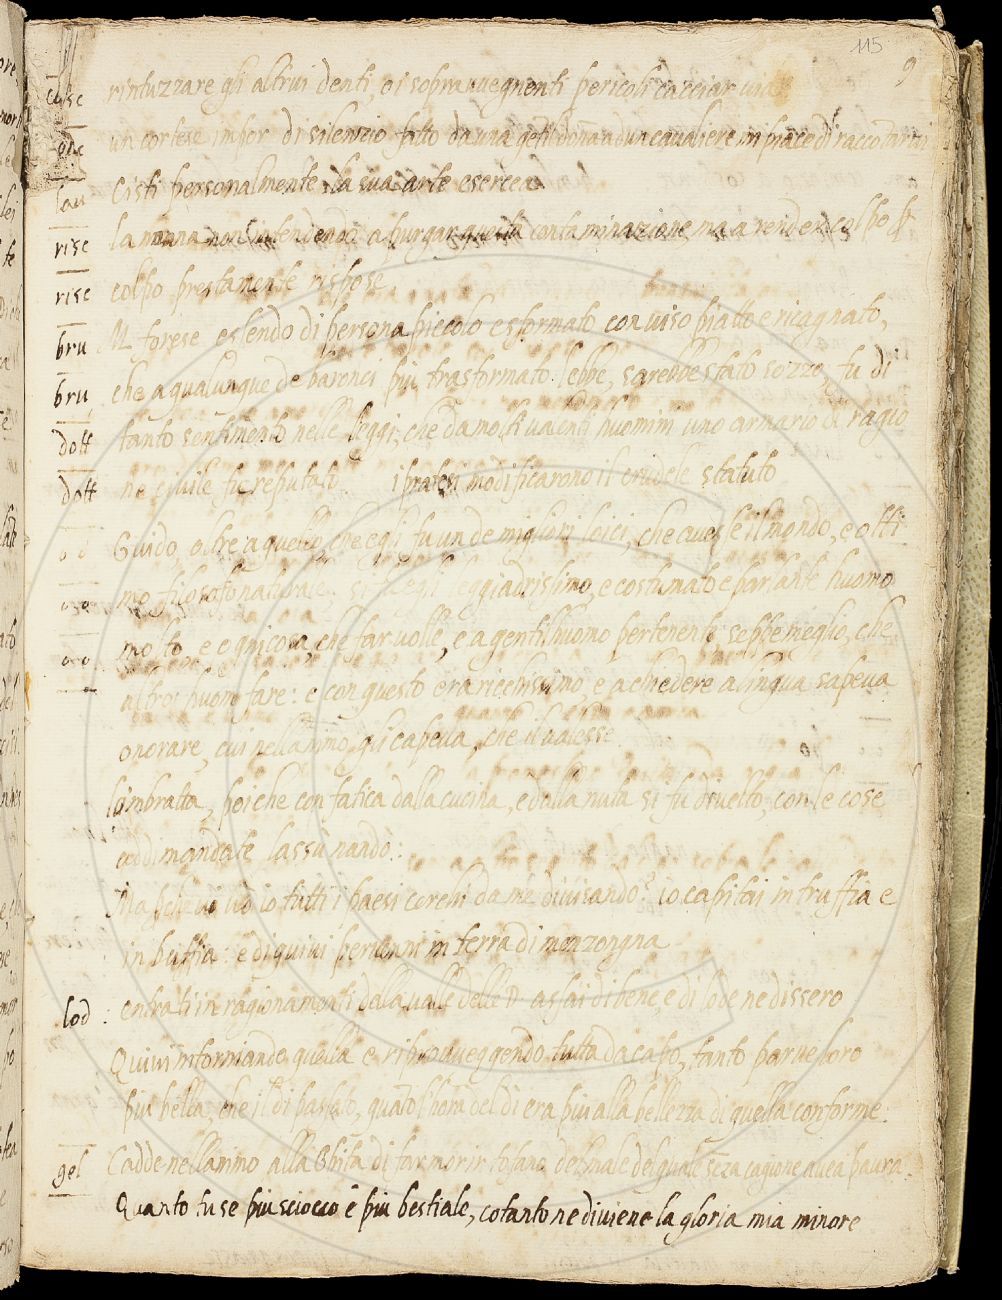 115
9
rintuzzare gli altrui denti, o i sopravvegnenti pericoli cacciar via
un cortese impor di silenzio fatto da una gentildonna ad un cavaliere in piace di raccontarsi
Cisti personalmente la sua arte esercea
la nonna non intendendo a purgar questa contaminazione ma a render colpo p
rise
colpo prestamente rispose
rise
M. forese essendo di persona piccolo e sformato con viso piatto e ricagnato,
bru
che a qualunque de baronci più trasformato l'ebbe, sarebbe stato sozzo, fu di
bru
tanto sentimento nelle leggi, che da molti valenti huomini uno armario di ragio
dott
ne civile fu reputato i pratesi modificarono il crudele statuto
dott
Guido, oltre a quello che egli fu un de migliori loici, che avesse il mondo, e otti
mo filosofo naturale si fu egli leggiadrissimo, e costumato e parlante huomo
molto e ogni cosa, che far volle, e a gentilhuomo pertenente seppe meglio, che
altro huom fare: e con questo era ricchissimo, e a chiedere a lingua sapeva
onorare, cui nell animo gli capeva, che il valesse
lo'mbratta, poi che con fatica dalla cucina, e dalla nuta si fu divelto, con le cose
addimandate lassù n'andò:
Ma perche vi vo io tutti i paesi cerchi da me divisando? io capitai in truffia e
in buffia: e di quivi pervenni in terra di menzongna
entrati in ragionamenti dalla valle delle D. assai di bene, e di lode ne dissero
lod
Quivi riguardandola e riprovveggendo tutta da capo, tanto parve loro
più bella, che il dì passato, quanto l'hora del dì era più alla bellezza di quella conforme.
Cadde nell animo alla Ghita di far morir tofano del male del quale senza cagione avea paura.
gel
Quanto tu se più sciocco e più bestiale, cotanto ne diviene la gloria mia minore